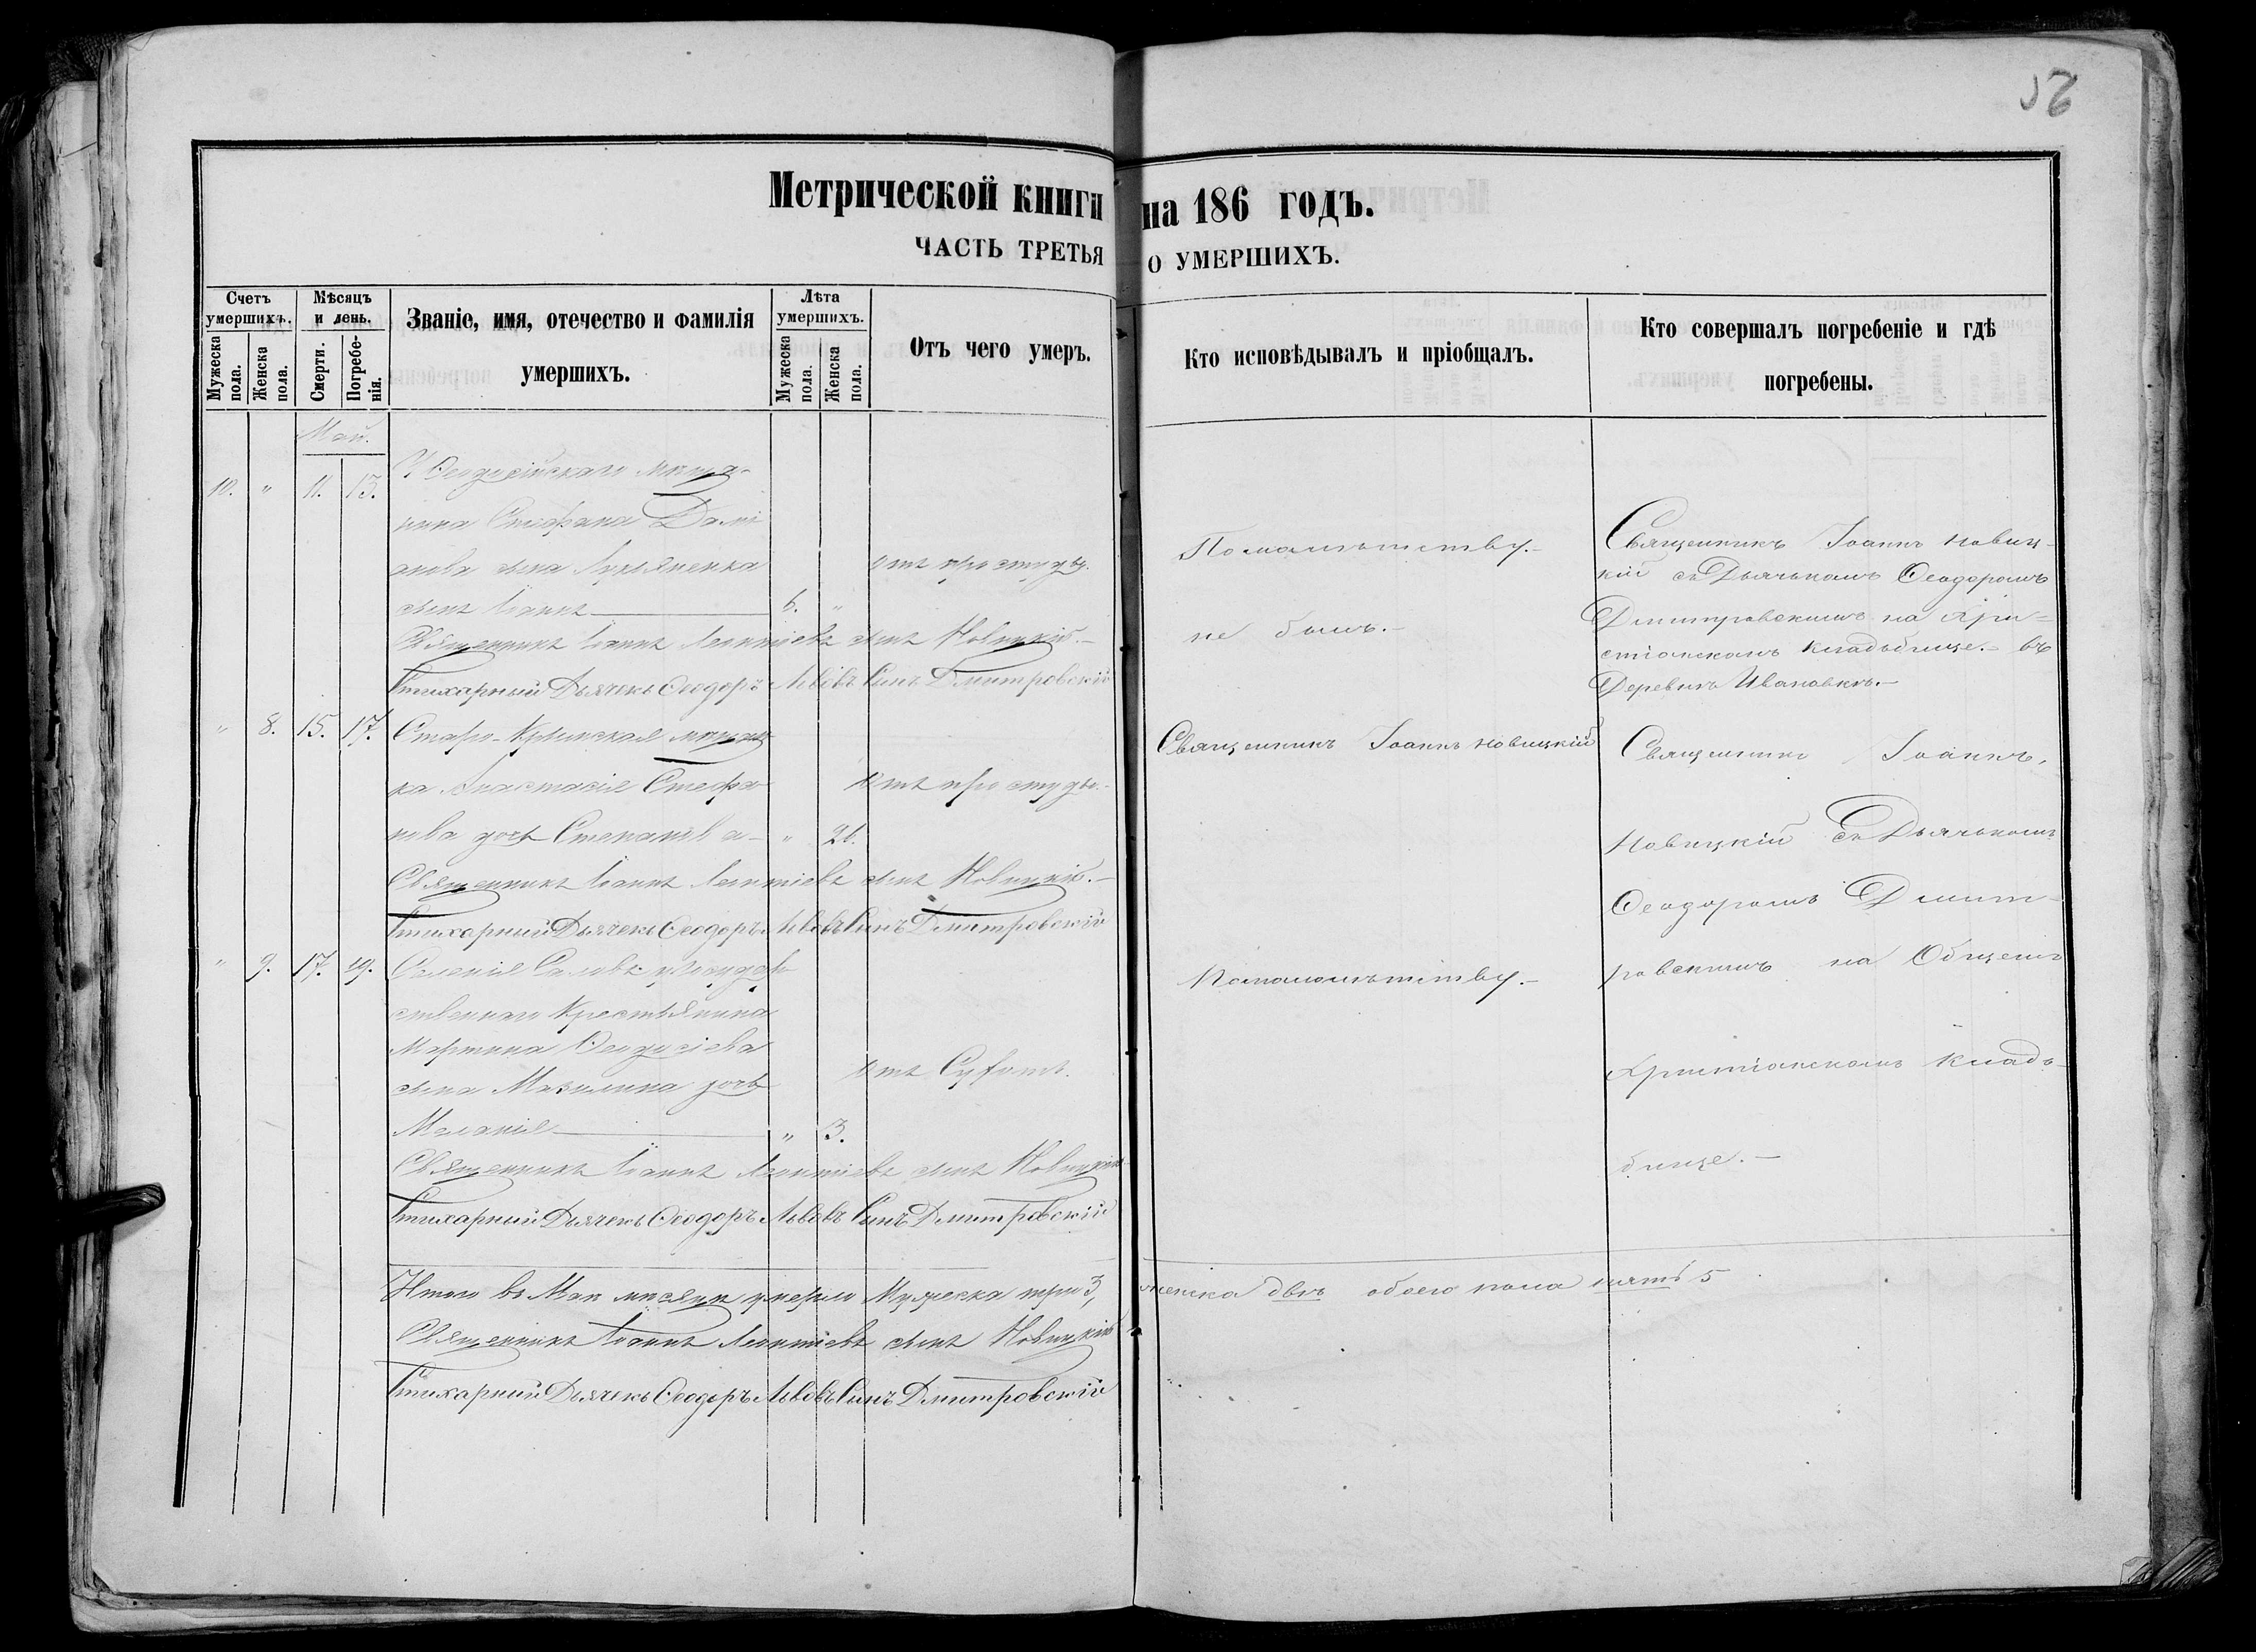 52
Метрической книги на 186 годъ.
ЧАСТЬ ТРЕТЬЯ О УМЕРШИХЪ.
Счетъ умершихъ.
Мужеска пола.
Женска пола.
Мѣсяцъ и день.
Смерти.
Погребенія.
Званіе, имя, отечество и фамилія умершихъ.
Лѣта умершихъ.
Мужеска пола.
Женска пола.
Отъ чего умеръ.
Кто исповѣдывалъ и пріобщалъ.
Кто совершалъ погребеніе и гдѣ погребены.
Май.
10. " 11. 13.
У Ѳеодосійскаго мѣща-
нина Стефана Дамі
анова сына Лукьяненка
сынъ Іоаннъ 6. "
отъ простуды.
Священникъ Іоаннъ Леонтіевъ сынъ Новицкій.
Стихарный Дьячекъ Ѳеодоръ Львовъ Сынъ Дмитровскій
По малолѣтству.
не былъ.
Священникъ Іоаннъ Новиц-
кій съ Дьячькомъ Ѳеодоромъ
Дмитровскимъ на Хри=
стіанскомъ кладбище. въ
Деревнѣ Ивановкѣ.
" 8. 15. 17.
Старо-Крымская мѣщан
ка Анастасія Стефа
нова дочь Степанова - " 26.
отъ простуды.
Священникъ Іоаннъ Леонтіевъ сынъ Новицкій.
Стихарный Дьячекъ Ѳеодоръ Львовъ Сынъ Дмитровскій
Священникъ Іоаннъ Новицкій
Священникъ Іоаннъ,
Новицкій съ Дьячькомъ
Ѳеодоромъ Дмит-
ровскимъ на Общемъ
Христіанскомъ кладъ-
бище.
" 9. 17. 19.
Селенія Саловъ у Государ
ственнаго Крестьянина
Мартина Ѳеодосіева
сына дочь
Меланія " 3.
отъ
По малолѣтству.
Священникъ Іоаннъ Леонтіевъ сынъ Новицкій
Стихарный Дьячекъ Ѳеодоръ Львовъ Сынъ Дмитровскій
Итого въ Маѣ мѣсяцѣ умерло Мужеска три 3, женска двѣ обоего пола пять 5
Священникъ Іоаннъ Леонтіевъ сынъ Новицкій
Стихарный Дьячекъ Ѳеодоръ Львовъ Сынъ Дмитровскій